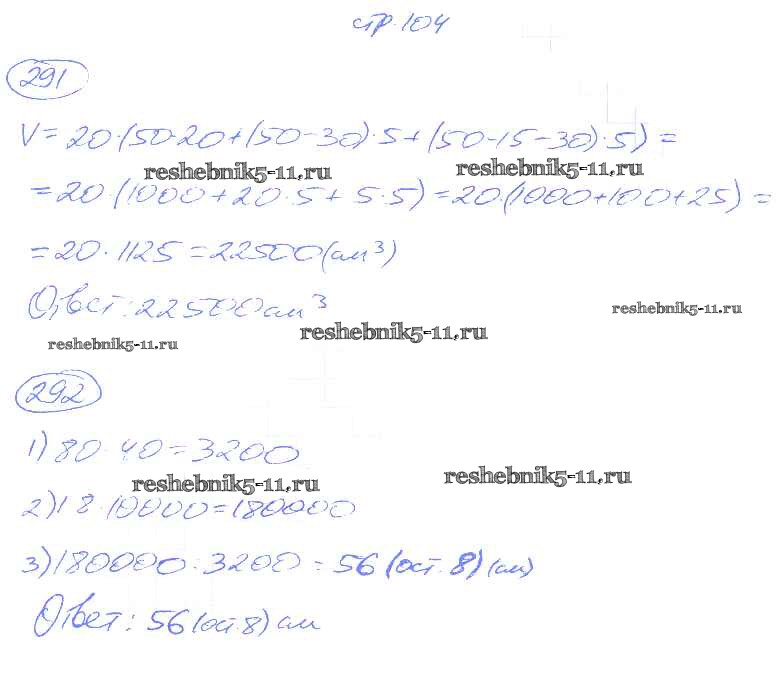 стр. 104
291
V = 20·(50·20+(50-30)·5+(50-15-30)·5) =
reshebnik5-11.ru reshebnik5-11.ru
= 20·(1000+20·5+5·5) = 20·(1000+100+25) =
= 20·1125 = 22500 (см³)
Ответ: 22500 см³
reshebnik5-11.ru
reshebnik5-11.ru
reshebnik5-11.ru
292
1) 80·40 = 3200
reshebnik5-11.ru reshebnik5-11.ru
2) 18·10000 = 180000
3) 180000:3200 = 56 (ост. 8) (см)
Ответ: 56 (ост 8) см